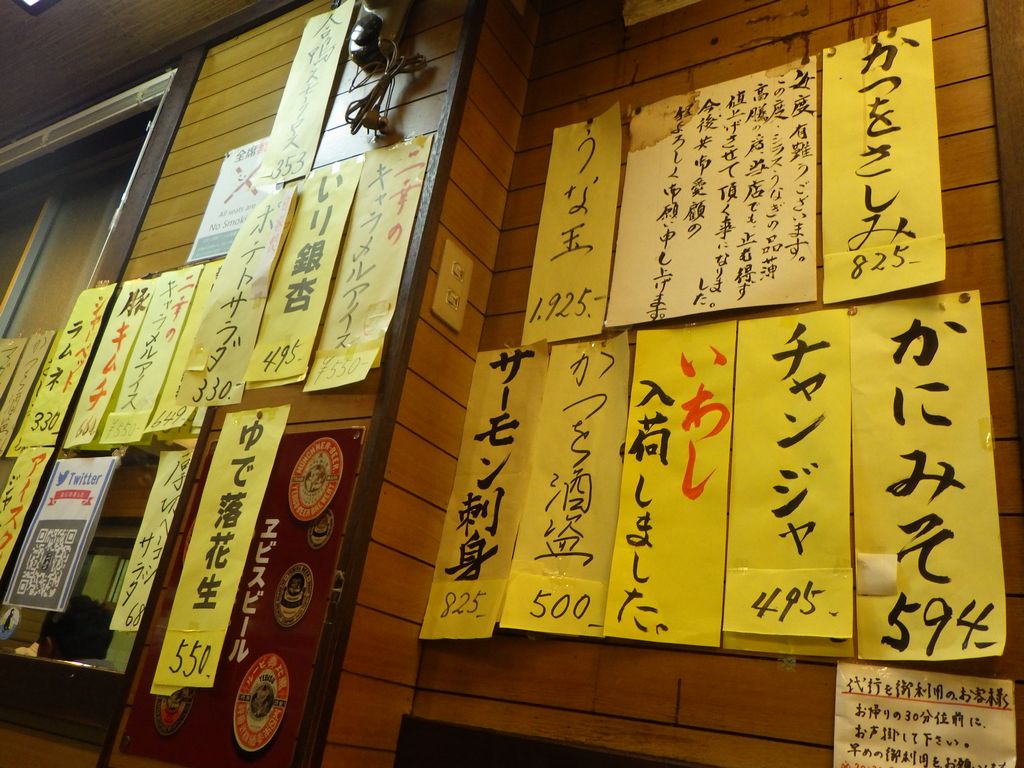 かつをさしみ
825-
毎度有難うございます。
この度、シラスうなぎの品薄
高騰の為当店でも止む得ず
値上げさせて頂く事になりました。
今後共御愛顧の
程よろしく御願い申し上げます。
うな玉
1.925-
かにみそ
594-
チャンジャ
495-
いわし
入荷しました。
かつを酒盗
500-
サーモン刺身
825-
代行を御利用のお客様
お帰りの30分位前に、
お声掛して下さい。
早めの御利用をお願いします
353
全席
All seats are
No Smoking
二幸の
キャラメルアイス
¥550
いり銀杏
495-
ポテトサラダ
330-
二幸の
キャラメルアイス
豚キムチ
シャーベット
ラムネ
330
ゆで落花生
550-
ヱビスビール
サラダ
68
Twitter